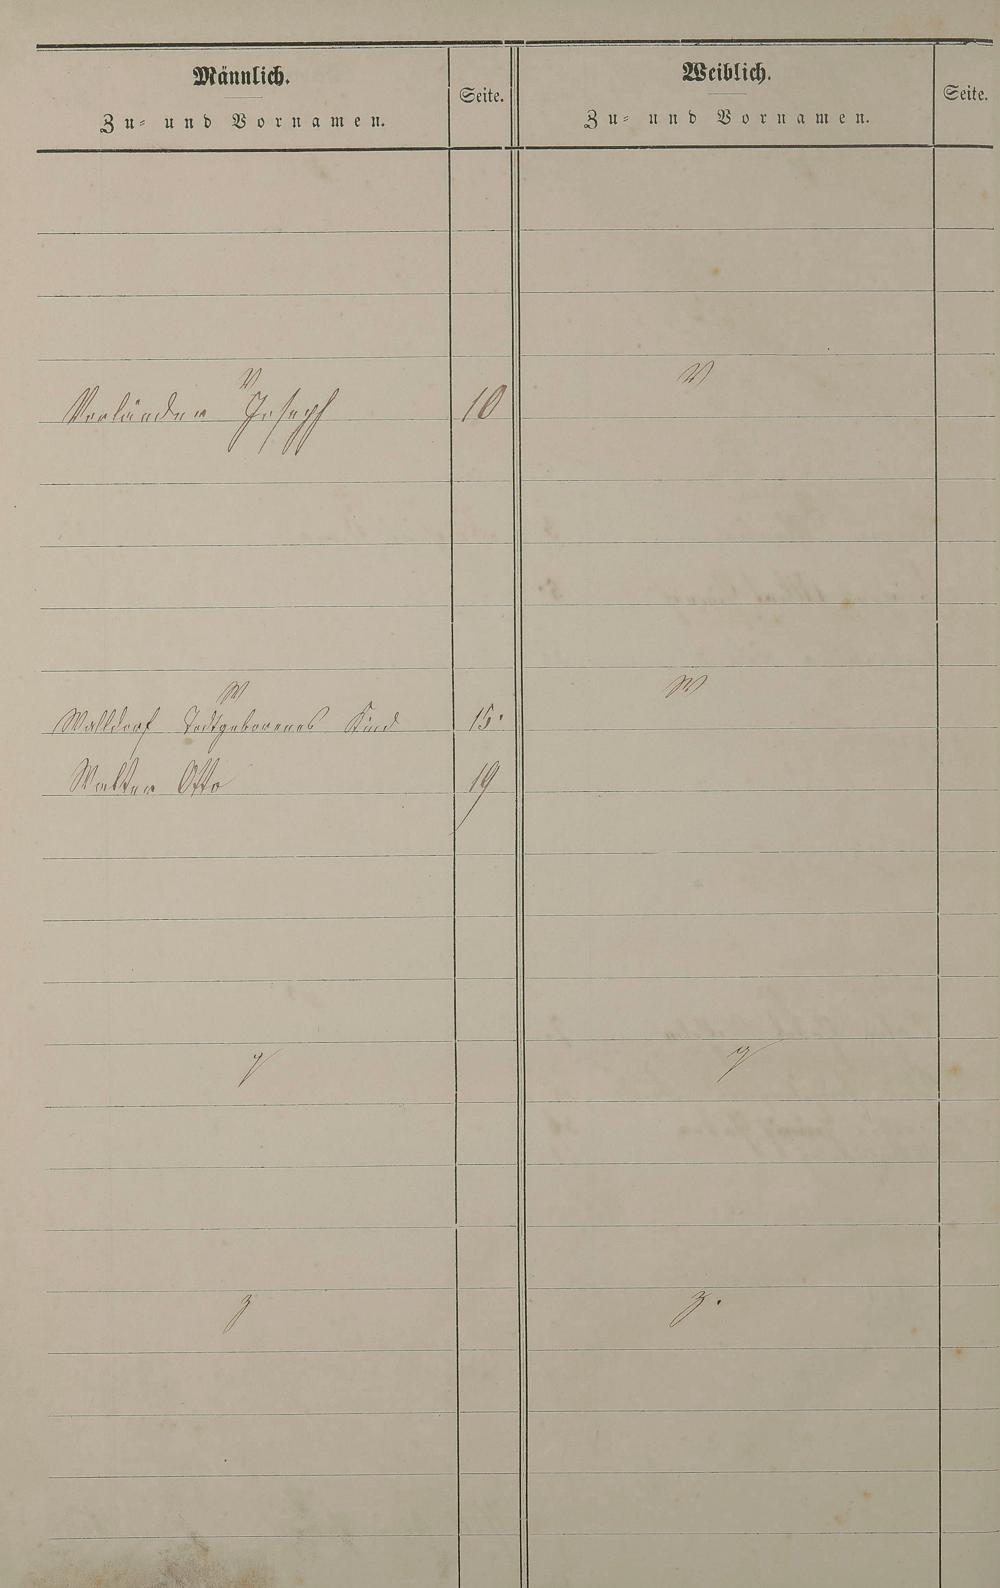 Männlich.
Zu- und Vornamen.
Seite.
Weiblich.
Zu- und Vornamen.
Seite.
V
V
Vorländer Joseph 10
W
W
Walldorf Todtgeborenes Kind 15.
Walter Otto 19
Y
Y
Z
Z.